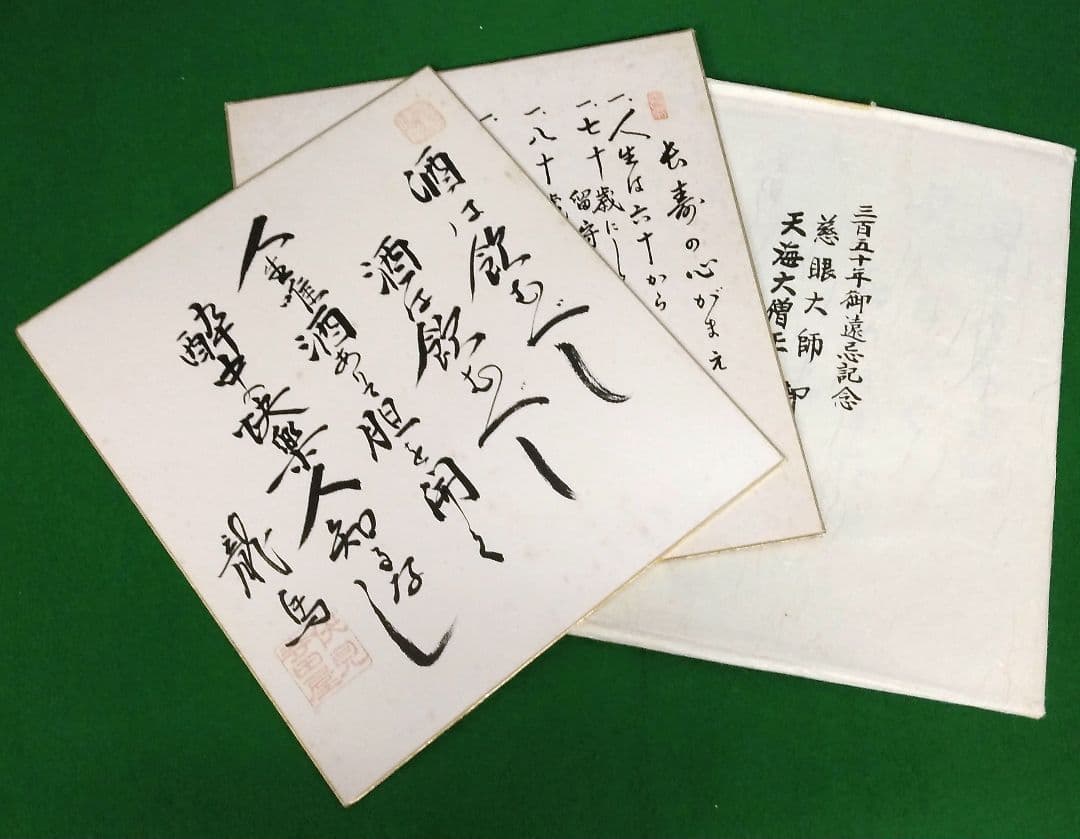 酒は飲むべし
酒は飲むべし
人生唯酒ありて胆を開く
酔中の快楽人知るなし
龍馬
伏見
寺田屋
長寿の心がまえ
一、人生は六十から
一、七十歳にし
留守
一、八十歳
一、
三百五十年御遠忌記念
慈眼大師
天海大僧正